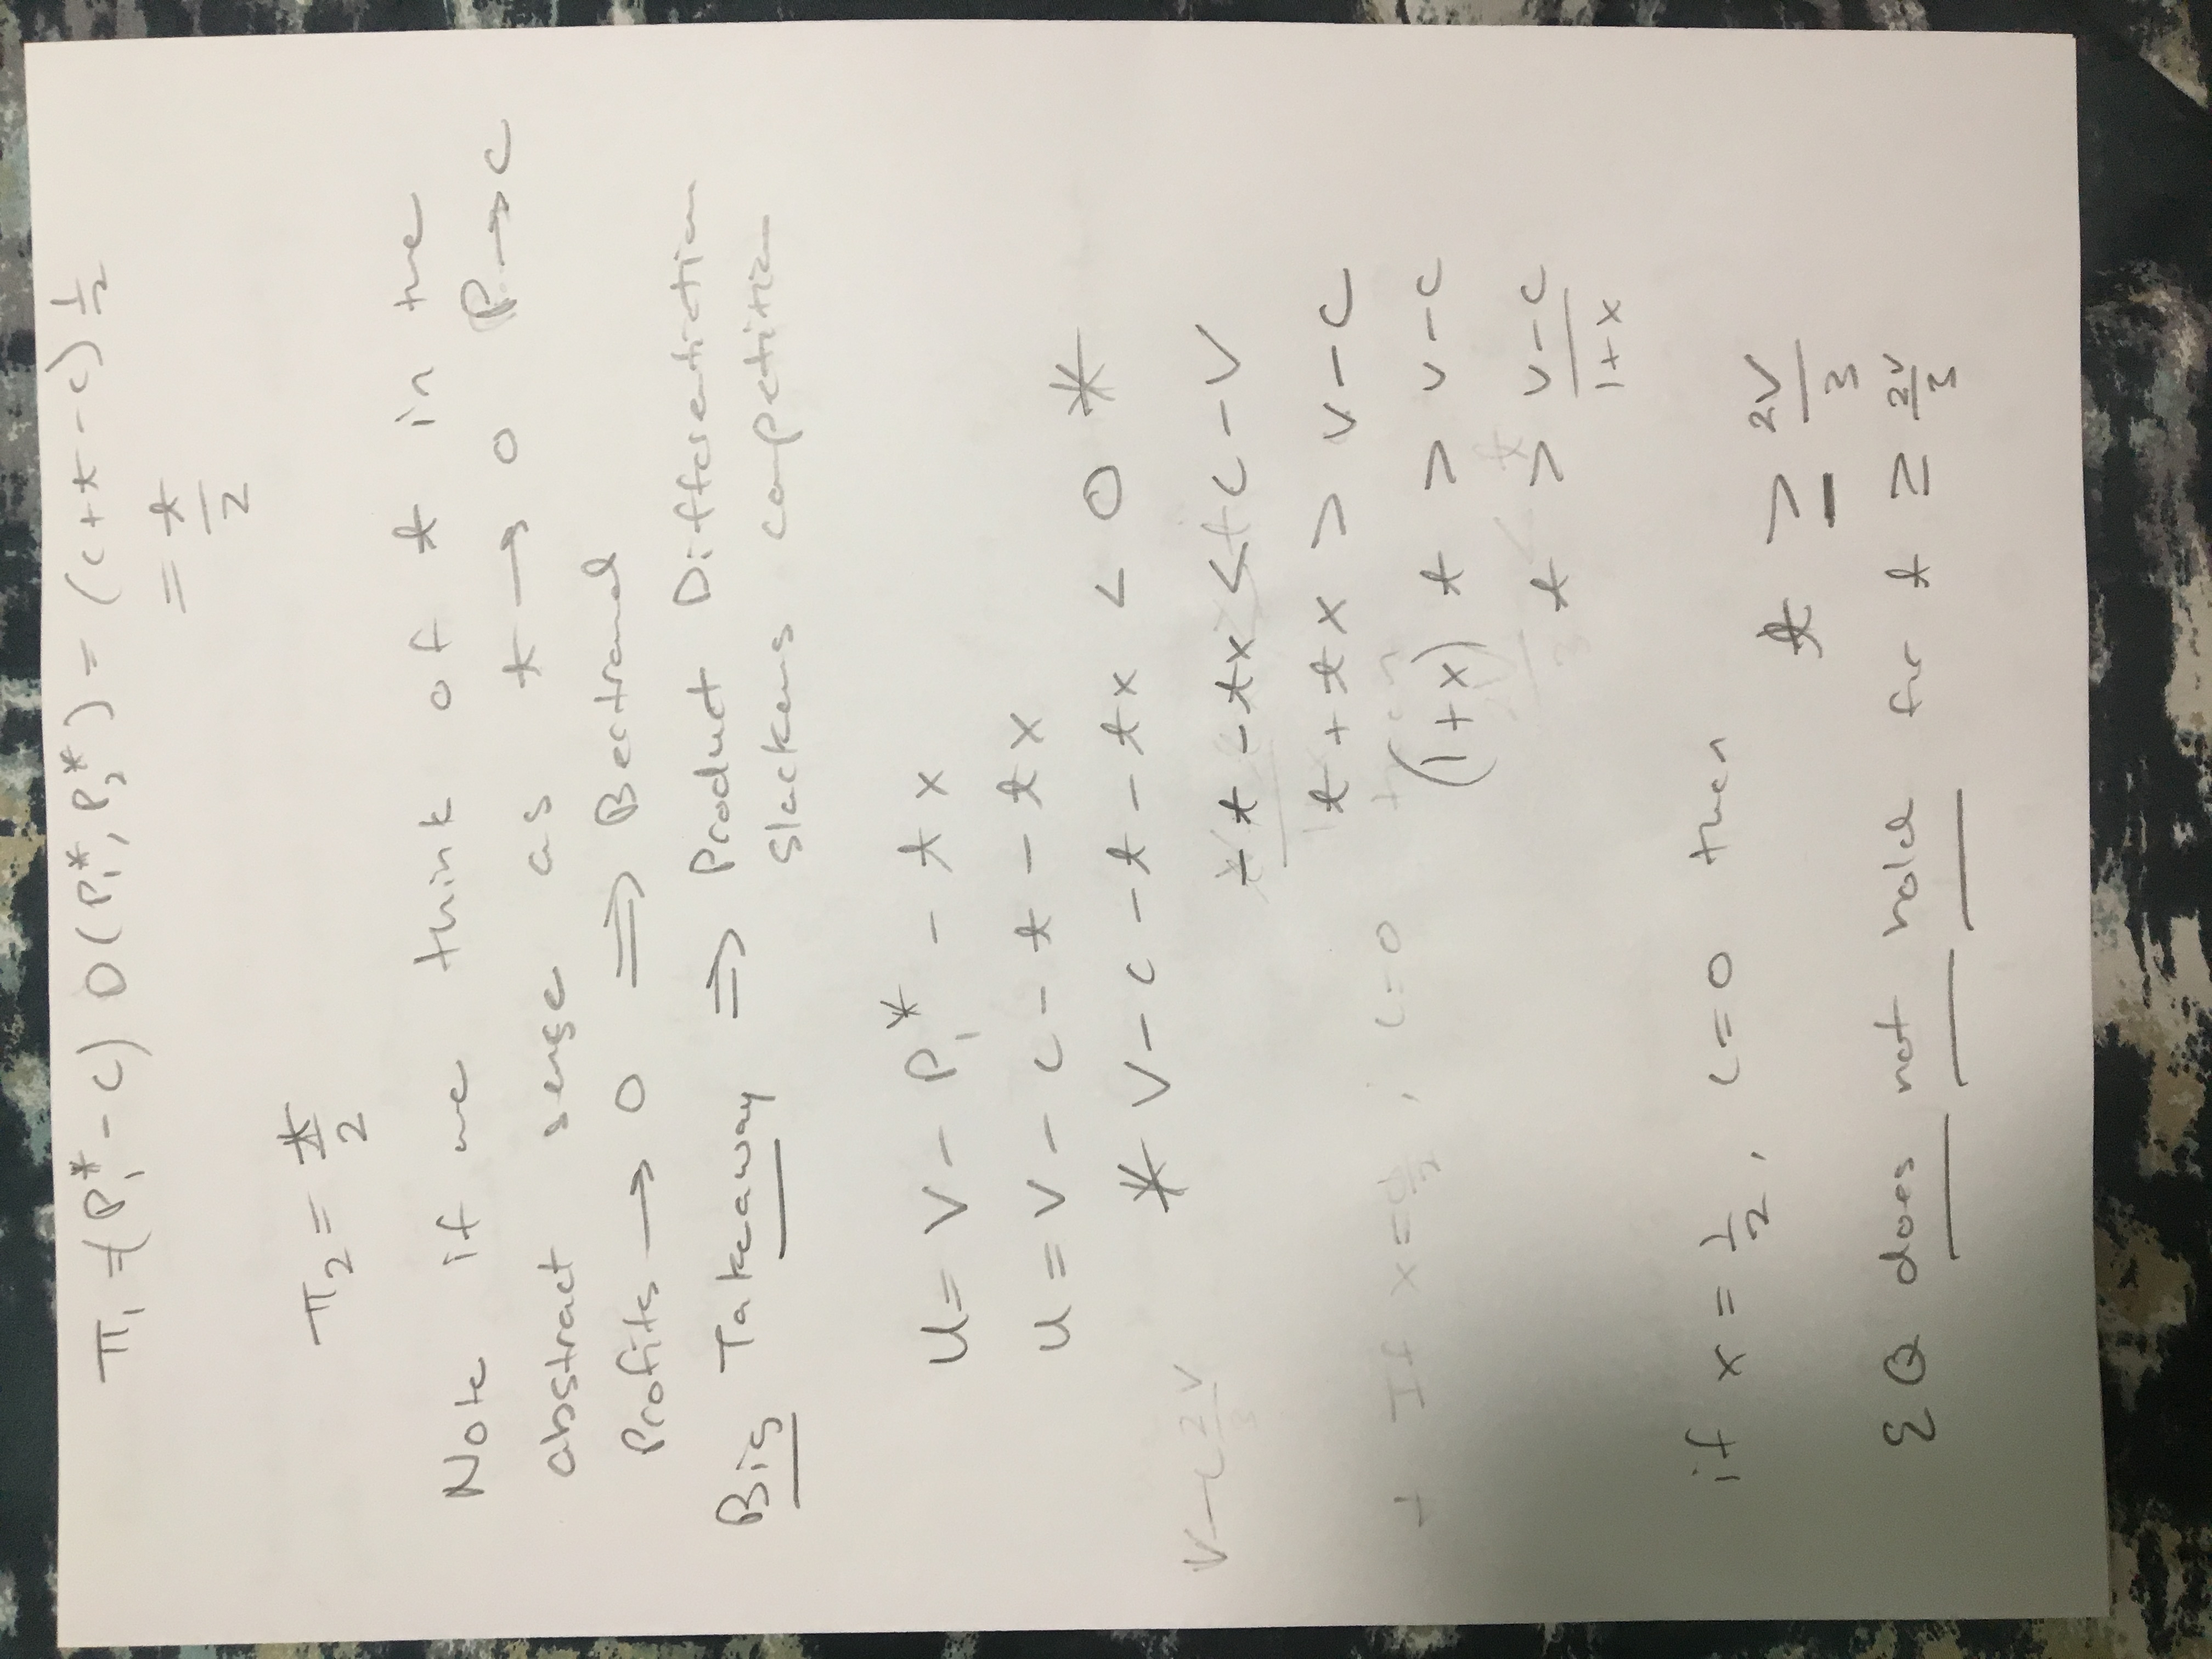 π₁ = (P₁* - c) D(P₁*, P₂*) = (c + t - c) 1/2
= t/2
π₂ = t/2
Note if we think of t in the
abstract sense as t → 0 P → c
Profits → 0 ⟹ Bertrand
Big Takeaway ⟹ Product Differentiation
slackens competition
U = V - P₁* - tx
U = V - c - t - tx
* V - c - t - tx < 0 *
V - c 2V/3
- t - tx < c - V
t + tx > v - c
If x = 1/2, c = 0 then
(1 + x) t > v - c
2V/3 < t
t > v - c / 1 + x
if x = 1/2, c = 0 then
t ≥ 2V/3
EQ does not hold for t ≥ 2V/3